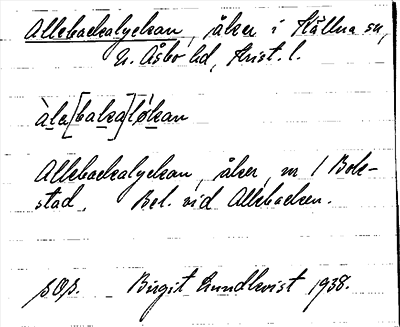 Allebackalyckan, åker i Källna sn,
N. Åsbo hd, Krist. l.
àle[baka]løkan
Allebackalyckan, åker, nr 1 Bok-
stad. Bel. vid Allebacken.
Birgit Sundkvist 1938.